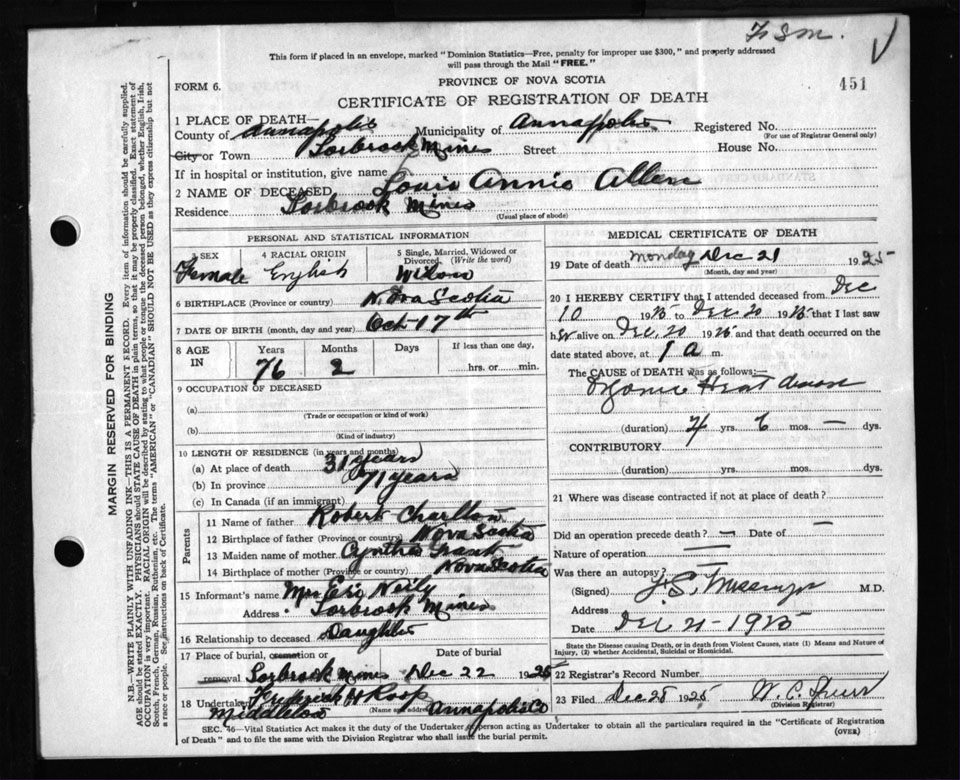 F S M.
This form if placed in an envelope, marked "Dominion Statistics—Free, penalty for improper use $300," and properly addressed
will pass through the Mail "FREE."
FORM 6.
PROVINCE OF NOVA SCOTIA
451
CERTIFICATE OF REGISTRATION OF DEATH
1 PLACE OF DEATH—
County of Annapolis Municipality of Annapolis Registered No.
(For use of Registrar General only)
City or Town Torbrook Mines Street House No.
If in hospital or institution, give name
2 NAME OF DECEASED Louie Annie Allen
Residence Torbrook Mines
(Usual place of abode)
PERSONAL AND STATISTICAL INFORMATION
3 SEX Female
4 RACIAL ORIGIN English
5 Single, Married, Widowed or Divorced. (Write the word) Widow
6 BIRTHPLACE (Province or Country) Nova Scotia
7 DATE OF BIRTH (month, day and year) Oct 17th
8 AGE IN Years 76 Months 2 Days If less than one day, hrs. or min.
9 OCCUPATION OF DECEASED
(a)
(Trade or occupation or kind of work)
(b)
(Kind of industry)
10 LENGTH OF RESIDENCE (in years and months)
(a) At place of death 31 years
(b) In province 71 years
(c) In Canada (if an immigrant)
Parents
11 Name of father Robert Charlton
12 Birthplace of father (Province or country) Nova Scotia
13 Maiden name of mother Cynthia
14 Birthplace of mother (Province or country) Nova Scotia
15 Informant's name Mrs Eri Neily
Address Torbrook Mines
16 Relationship to deceased Daughter
17 Place of burial, cremation or removal Torbrook Mines
Date of burial Dec 22 1925
18 Undertaker H Roop
(Name and address)
Middleton Annapolis Co
MEDICAL CERTIFICATE OF DEATH
19 Date of death Monday Dec 21 1925
(Month, day and year)
20 I HEREBY CERTIFY that I attended deceased from Dec
10 1925 to Dec 20 1925 that I last saw
her alive on Dec. 20 1925 and that death occurred on the
date stated above, at 1 a m.
The CAUSE of DEATH was as follows:
Heart
(duration) 4 yrs. 6 mos. — dys.
CONTRIBUTORY
(duration) yrs. mos. dys.
21 Where was disease contracted if not at place of death?
Did an operation precede death? — Date of —
Nature of operation —
Was there an autopsy?
(Signed) M.D.
Address
Date Dec 21-1925
State the Disease causing Death, or in death from Violent Causes, state (1) Means and Nature of
Injury, (2) whether Accidental, Suicidal or Homicidal.
22 Registrar's Record Number
23 Filed Dec 28 1925 W. C.
(Division Registrar)
SEC. 46—Vital Statistics Act makes it the duty of the Undertaker or person acting as Undertaker to obtain all the particulars required in the "Certificate of Registration
of Death" and to file the same with the Division Registrar who shall issue the burial permit.
(OVER)
MARGIN RESERVED FOR BINDING
N.B.—WRITE PLAINLY WITH UNFADING INK—THIS IS A PERMANENT RECORD. Every item of information should be carefully supplied.
AGE should be stated EXACTLY. PHYSICIANS should STATE CAUSE OF DEATH in plain terms, so that it may be properly classified. Exact statement of
OCCUPATION is very important. RACIAL ORIGIN will be described by stating to what people or tongue the deceased person belonged, whether English, Irish,
Scotch, French, German, Russian, Ruthenian, etc. The terms "AMERICAN" or "CANADIAN" SHOULD NOT BE USED as they express citizenship but not
a race or people. See instructions on back of Certificate.